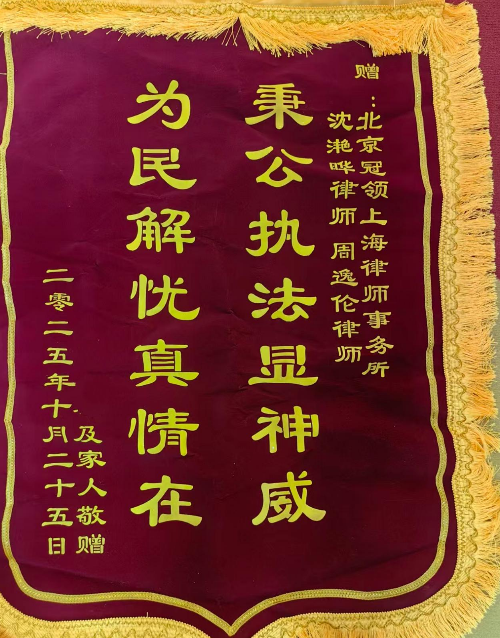 赠：北京冠领上海律师事务所
沈滟晔律师 周逸伦律师
秉公执法显神威
为民解忧真情在
及家人敬赠
二零二五年十月二十五日